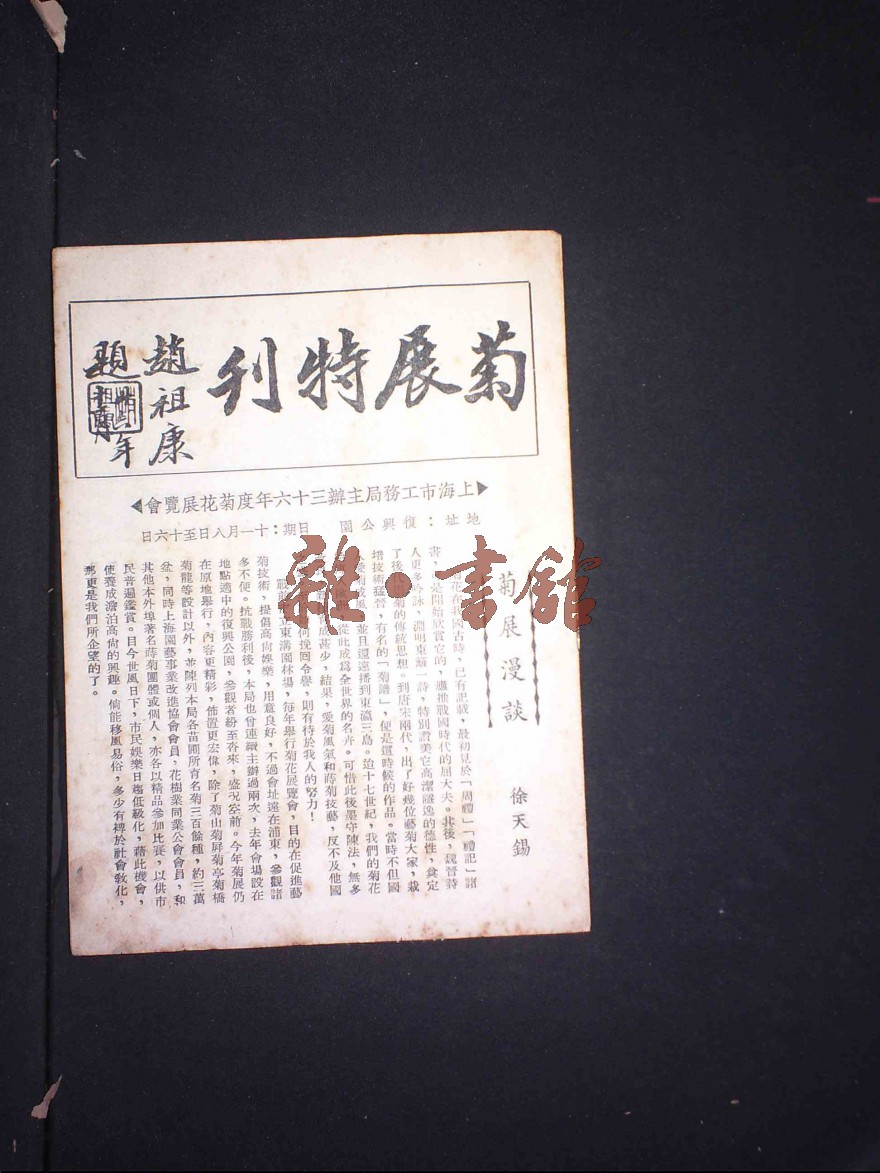 菊展特刊
趙祖康
題
年
上海市工務局主辦三十六年度菊花展覽會
地址：復興公園 日期：十一月八日至十六日
菊展漫談
徐天錫
菊花在我國古時，已有記載，最初見於「周禮」「禮記」諸
書，是開始欣賞它的，應推戰國時代的屈大夫。其後，魏晉詩
人更多吟咏，淵明東籬一詩，特別讚美它高潔隱逸的德性，奠定
了後代菊的傳統思想。到唐宋兩代，出了好幾位藝菊大家，栽
培技術猛晉，有名的「菊譜」，便是這時候的作品。當時不但國
愛菊成風，並且還遠播到東瀛三島。迨十七世紀，我們的菊花
從此成為全世界的名卉。可惜此後墨守陳法，無多
成甚少，結果，愛菊風氣和蒔菊技藝，反不及他國
何挽回令譽，則有待於我人的努力！
戰前市立東溝園林場，每年舉行菊花展覽會，目的在促進藝
菊技術，提倡高尚娛樂，用意良好，不過會址遠在浦東，參觀諸
多不便。抗戰勝利後，本局也曾連續主辦過兩次，去年會場設在
地點適中的復興公園，參觀者紛至沓來，盛況空前。今年菊展仍
在原地舉行，內容更精彩，佈置更宏偉，除了菊山菊屏菊亭菊橋
菊龍等設計以外，並陳列本局各苗圃所有名菊三百餘種，約三萬
盆，同時上海園藝事業改進協會會員，花樹業同業公會會員，和
其他本外埠著名蒔菊團體或個人，亦各以精品參加比賽，以供市
民普遍鑑賞。目今世風日下，市民娛樂日趨低級化，藉此機會，
使養成澹泊高尚的興趣。倘能移風易俗，多少有裨於社會教化，
那更是我們所企望的了。
雜·書館